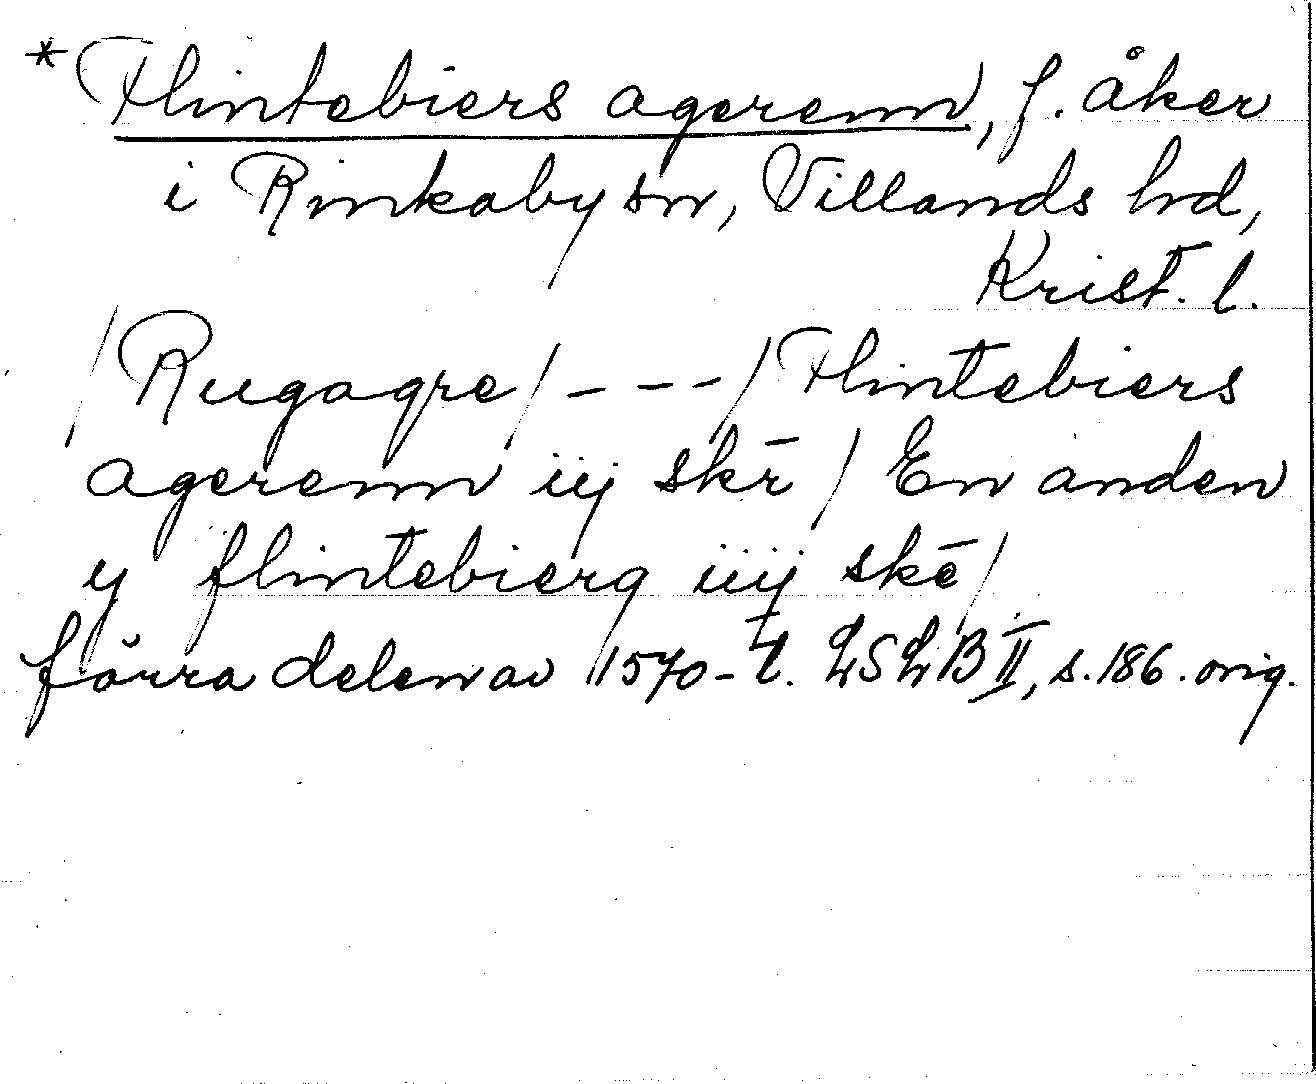 * Flintebiers agerenn, f. åker
i Rinkaby sn, Villands hd,
Krist. l.
/Rugagre/ - - - / Flintebiers
agerenn iij skē / En anden
y flintebierg iiij skē /
förra delen av 1570-t. LSLB II, s. 186. orig.